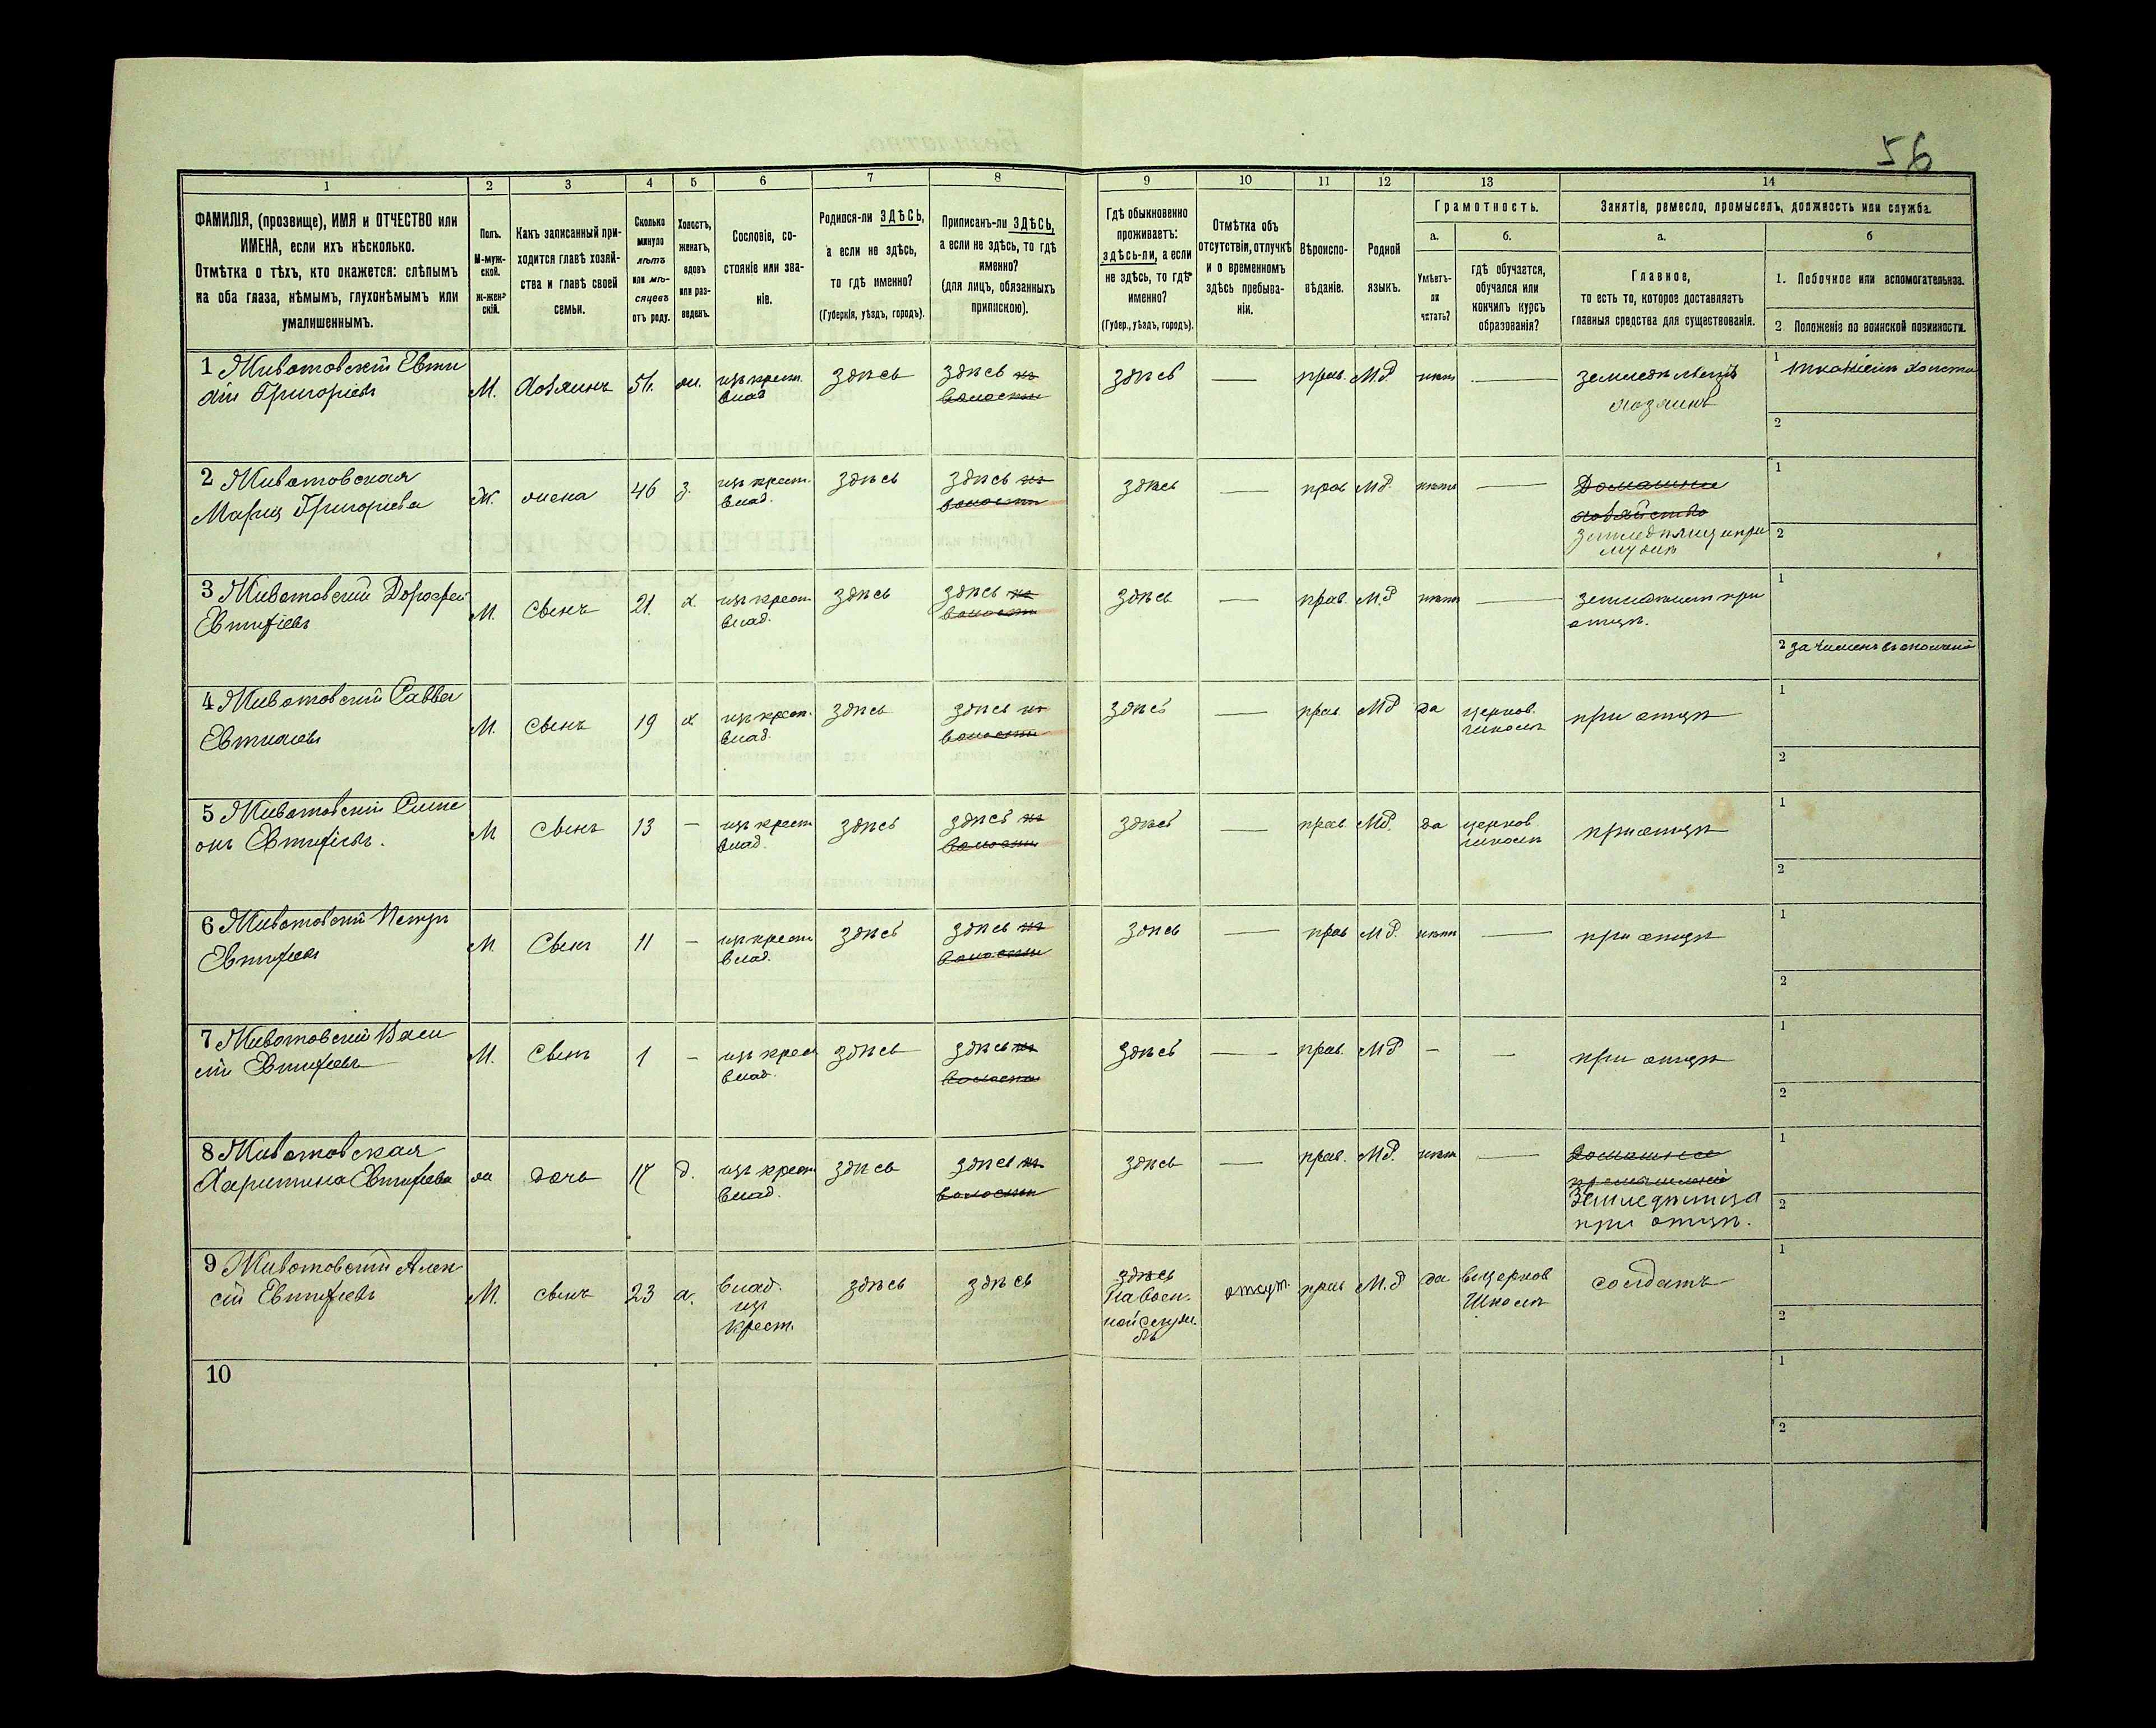 56
1 2 3 4 5 6 7 8 9 10 11 12 13 14
ФАМИЛІЯ, (прозвище), ИМЯ и ОТЧЕСТВО или
ИМЕНА, если ихъ нѣсколько.
Отмѣтка о тѣхъ, кто окажется: слѣпымъ
на оба глаза, нѣмымъ, глухонѣмымъ или
умалишеннымъ.
Полъ.
М-муж-
ской.
ж-жен-
скій.
Какъ записанный при-
ходится главѣ хозяй-
ства и главѣ своей
семьи.
Сколько
минуло
лѣтъ
или мѣ-
сяцевъ
отъ роду.
Холостъ,
женатъ,
вдовъ
или раз-
веденъ.
Сословіе, со-
стояніе или зва-
ніе.
Родился-ли ЗДѢСЬ,
а если не здѣсь,
то гдѣ именно?
(Губернія, уѣздъ, городъ).
Приписанъ-ли ЗДѢСЬ,
а если не здѣсь, то гдѣ
именно?
(для лицъ, обязанныхъ
припискою).
Гдѣ обыкновенно
проживаетъ:
здѣсь-ли, а если
не здѣсь, то гдѣ
именно?
(Губер., уѣздъ, городъ).
Отмѣтка объ
отсутствіи, отлучкѣ
и о временномъ
здѣсь пребыва-
ніи.
Вѣроиспо-
вѣданіе.
Родной
языкъ.
Грамотность.
а.
Умѣетъ-
ли
читать?
б.
гдѣ обучается,
обучался или
кончилъ курсъ
образованія?
Занятія, ремесло, промыселъ, должность или служба.
а.
Главное,
то есть то, которое доставляетъ
главныя средства для существованія.
б
1. Побочное или вспомогательное.
2. Положеніе по воинской повинности.
1 Животовскій Евти
хій Григоріевъ
М. Хозяинъ 51. ж. изъ крест. здѣсь здѣсь въ
влад волости
здѣсь — прав. М.Р. нѣтъ —
хозяинъ
1
2
2 Животовская
Марія Григоріева
Ж. жена 46 з. изъ крест. здѣсь здѣсь въ
влад. волости
здѣсь — прав М.Р. нѣтъ — Домашнее
хозяйство
1
2
3 Животовскій Дорофей
Евтифіевъ
М. Сынъ 21. х. изъ крест здѣсь здѣсь въ
влад. волости
здѣсь — прав. М.Р нѣтъ —
отцѣ.
1
2
4 Животовскій Савва
М. Сынъ 19 х изъ крест. здѣсь здѣсь въ
влад. волости
здѣсь прав МР да церков. при отцѣ
школѣ
1
2
5 Животовскій Симе
онъ Евтифіевъ.
М Сынъ 13 — изъ крест здѣсь здѣсь въ
влад. волости
здѣсь — прав. МР. да церков при отцѣ
школѣ
1
2
6 Животовскій Петръ
Евтифіевъ
М Сынъ 11 — изъ крест здѣсь здѣсь въ
влад. волости
здѣсь — прав М Р. нѣтъ — при отцѣ
1
2
7 Животовскій Васи
лій Евтифіевъ
М. Сынъ 1 — изъ крест здѣсь здѣсь въ
влад. волости
здѣсь — прав. МР — — при отцѣ
1
2
8 Животовская
Харитина Евтифіева
ж дочь 17 д. изъ крест здѣсь здѣсь въ
влад. волости
здѣсь — прав. М.Р. нѣтъ — Домашнее
Земледѣлица
при отцѣ.
1
2
9 Животовскій Алек
сій Евтифіевъ
М. сынъ 23 х. влад. здѣсь здѣсь
изъ
крест.
здѣсь
На воен.
ной служ.
бѣ
отсут. прав М.Р да въ церков солдатъ
Школѣ
1
2
10
1
2